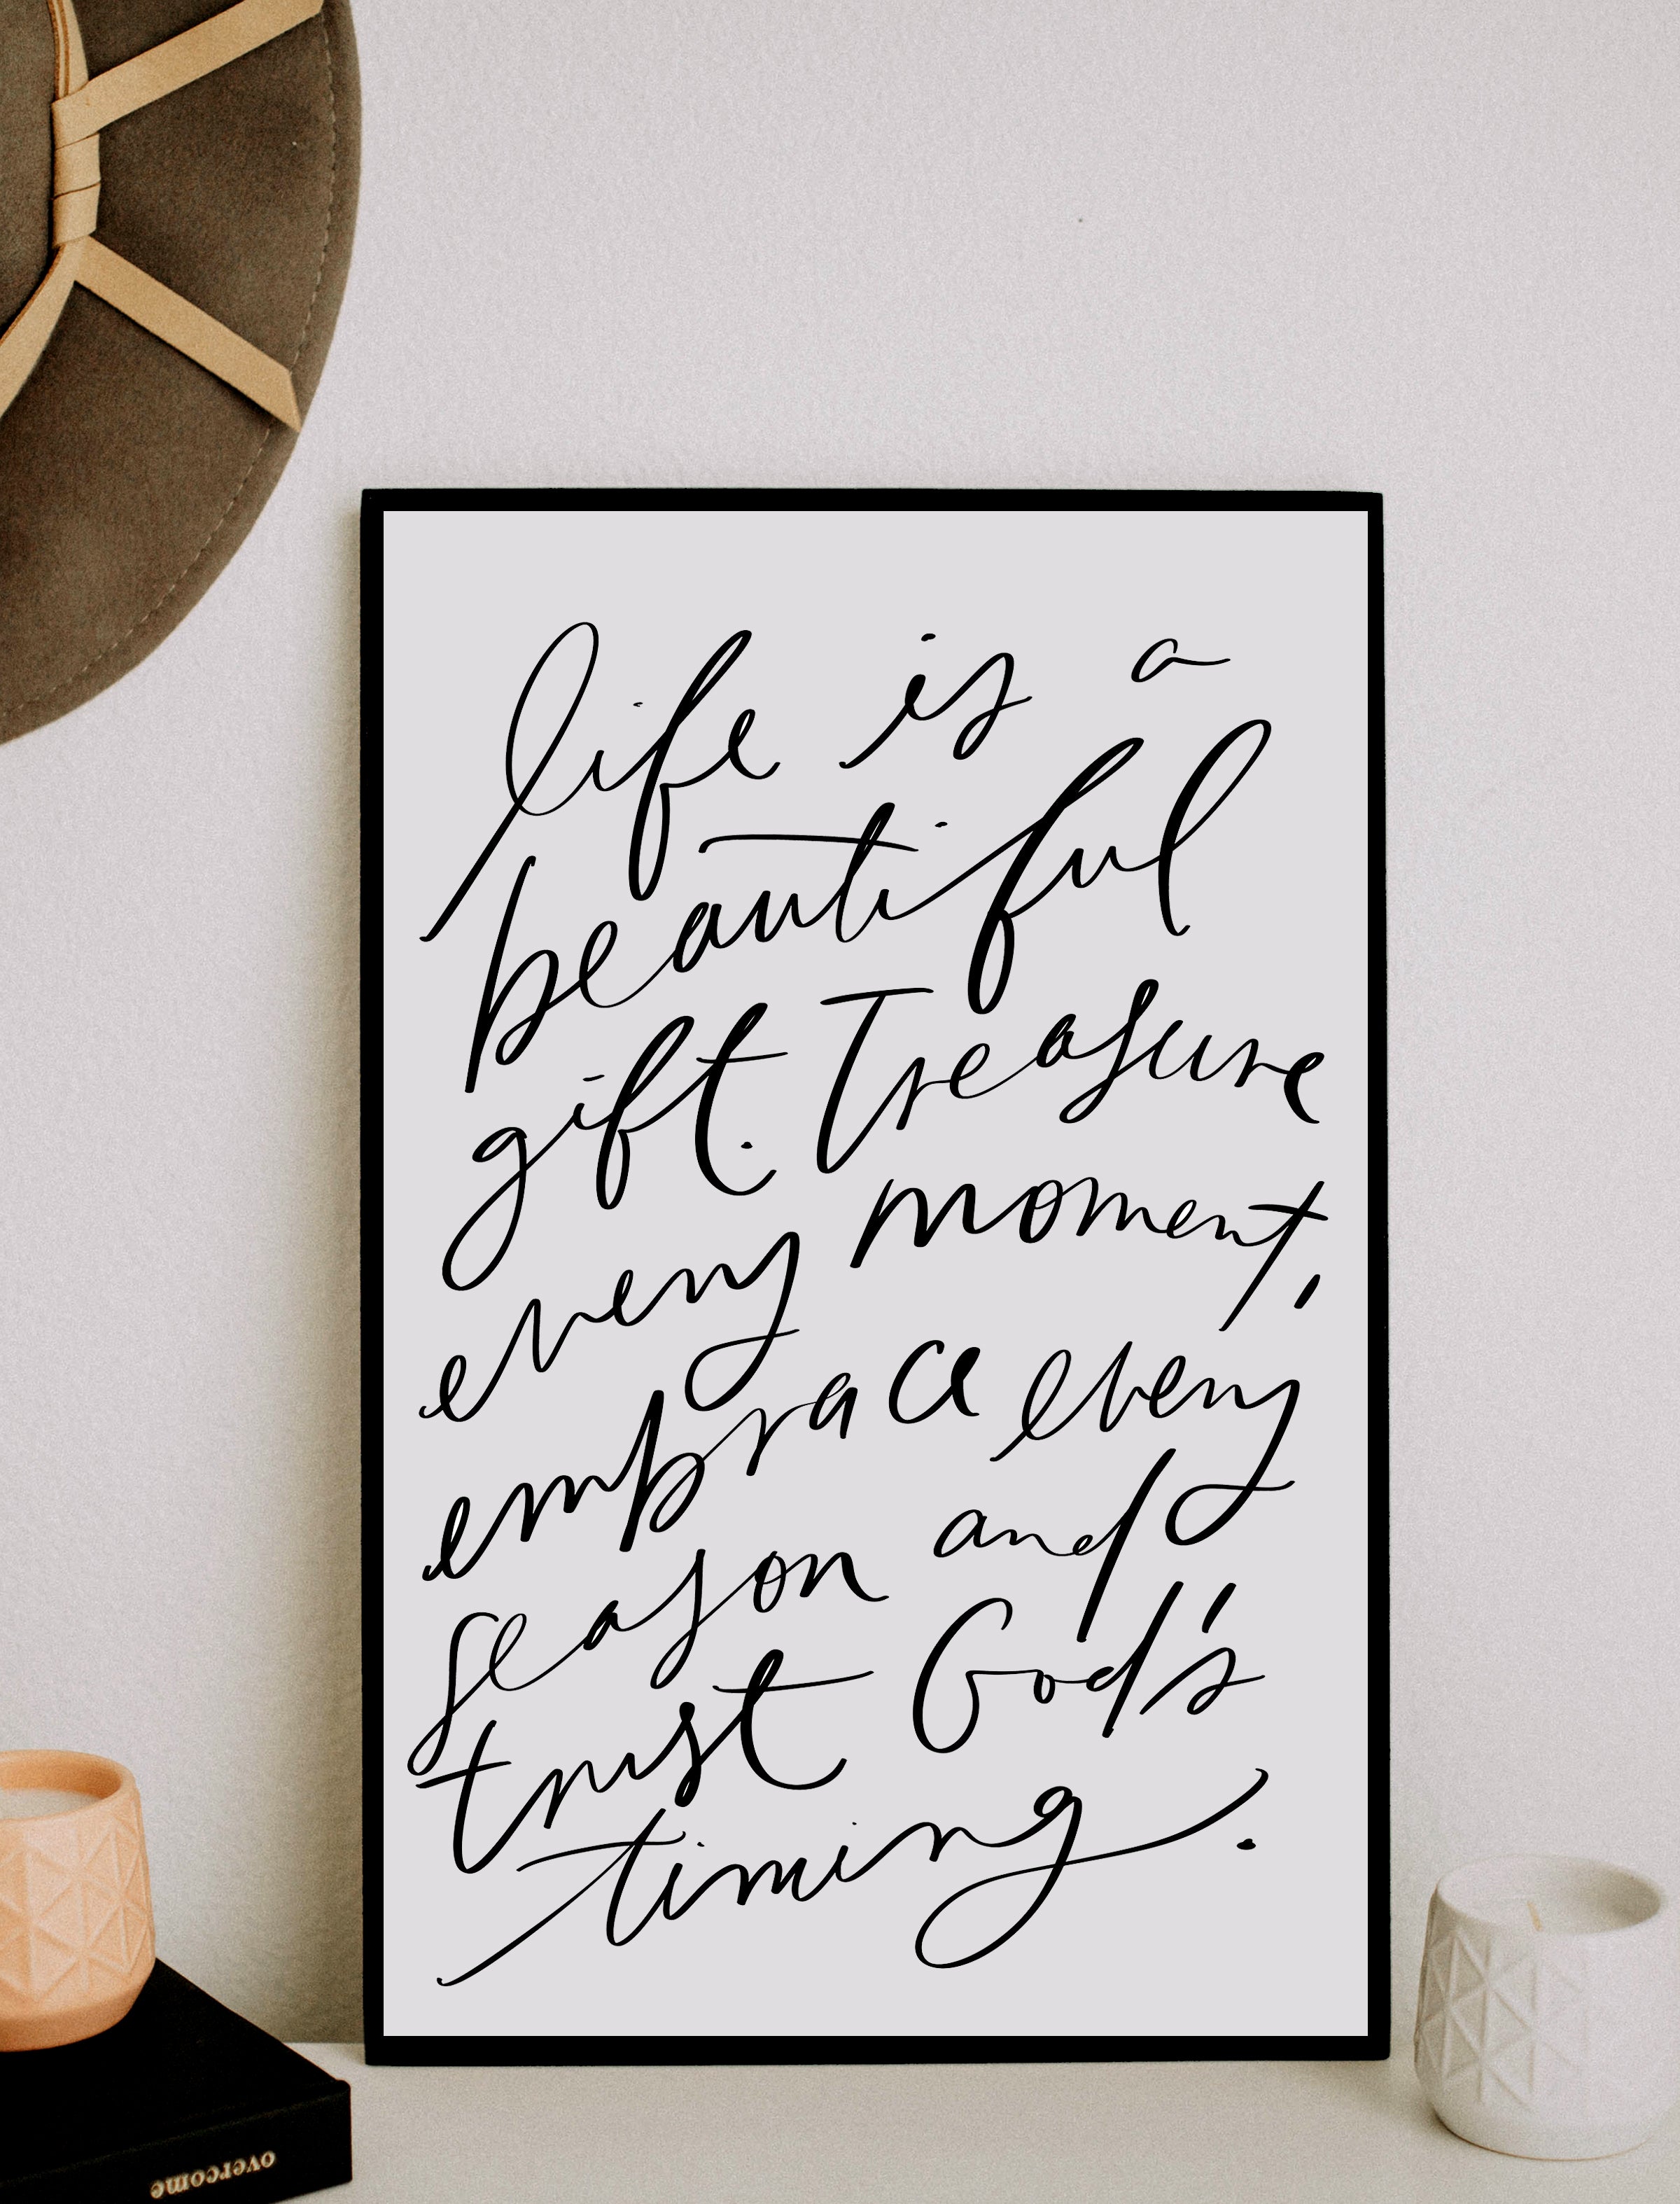 life is a
beautiful
gift. Treasure
every moment,
embrace every
season and
trust God's
timing.
overcome